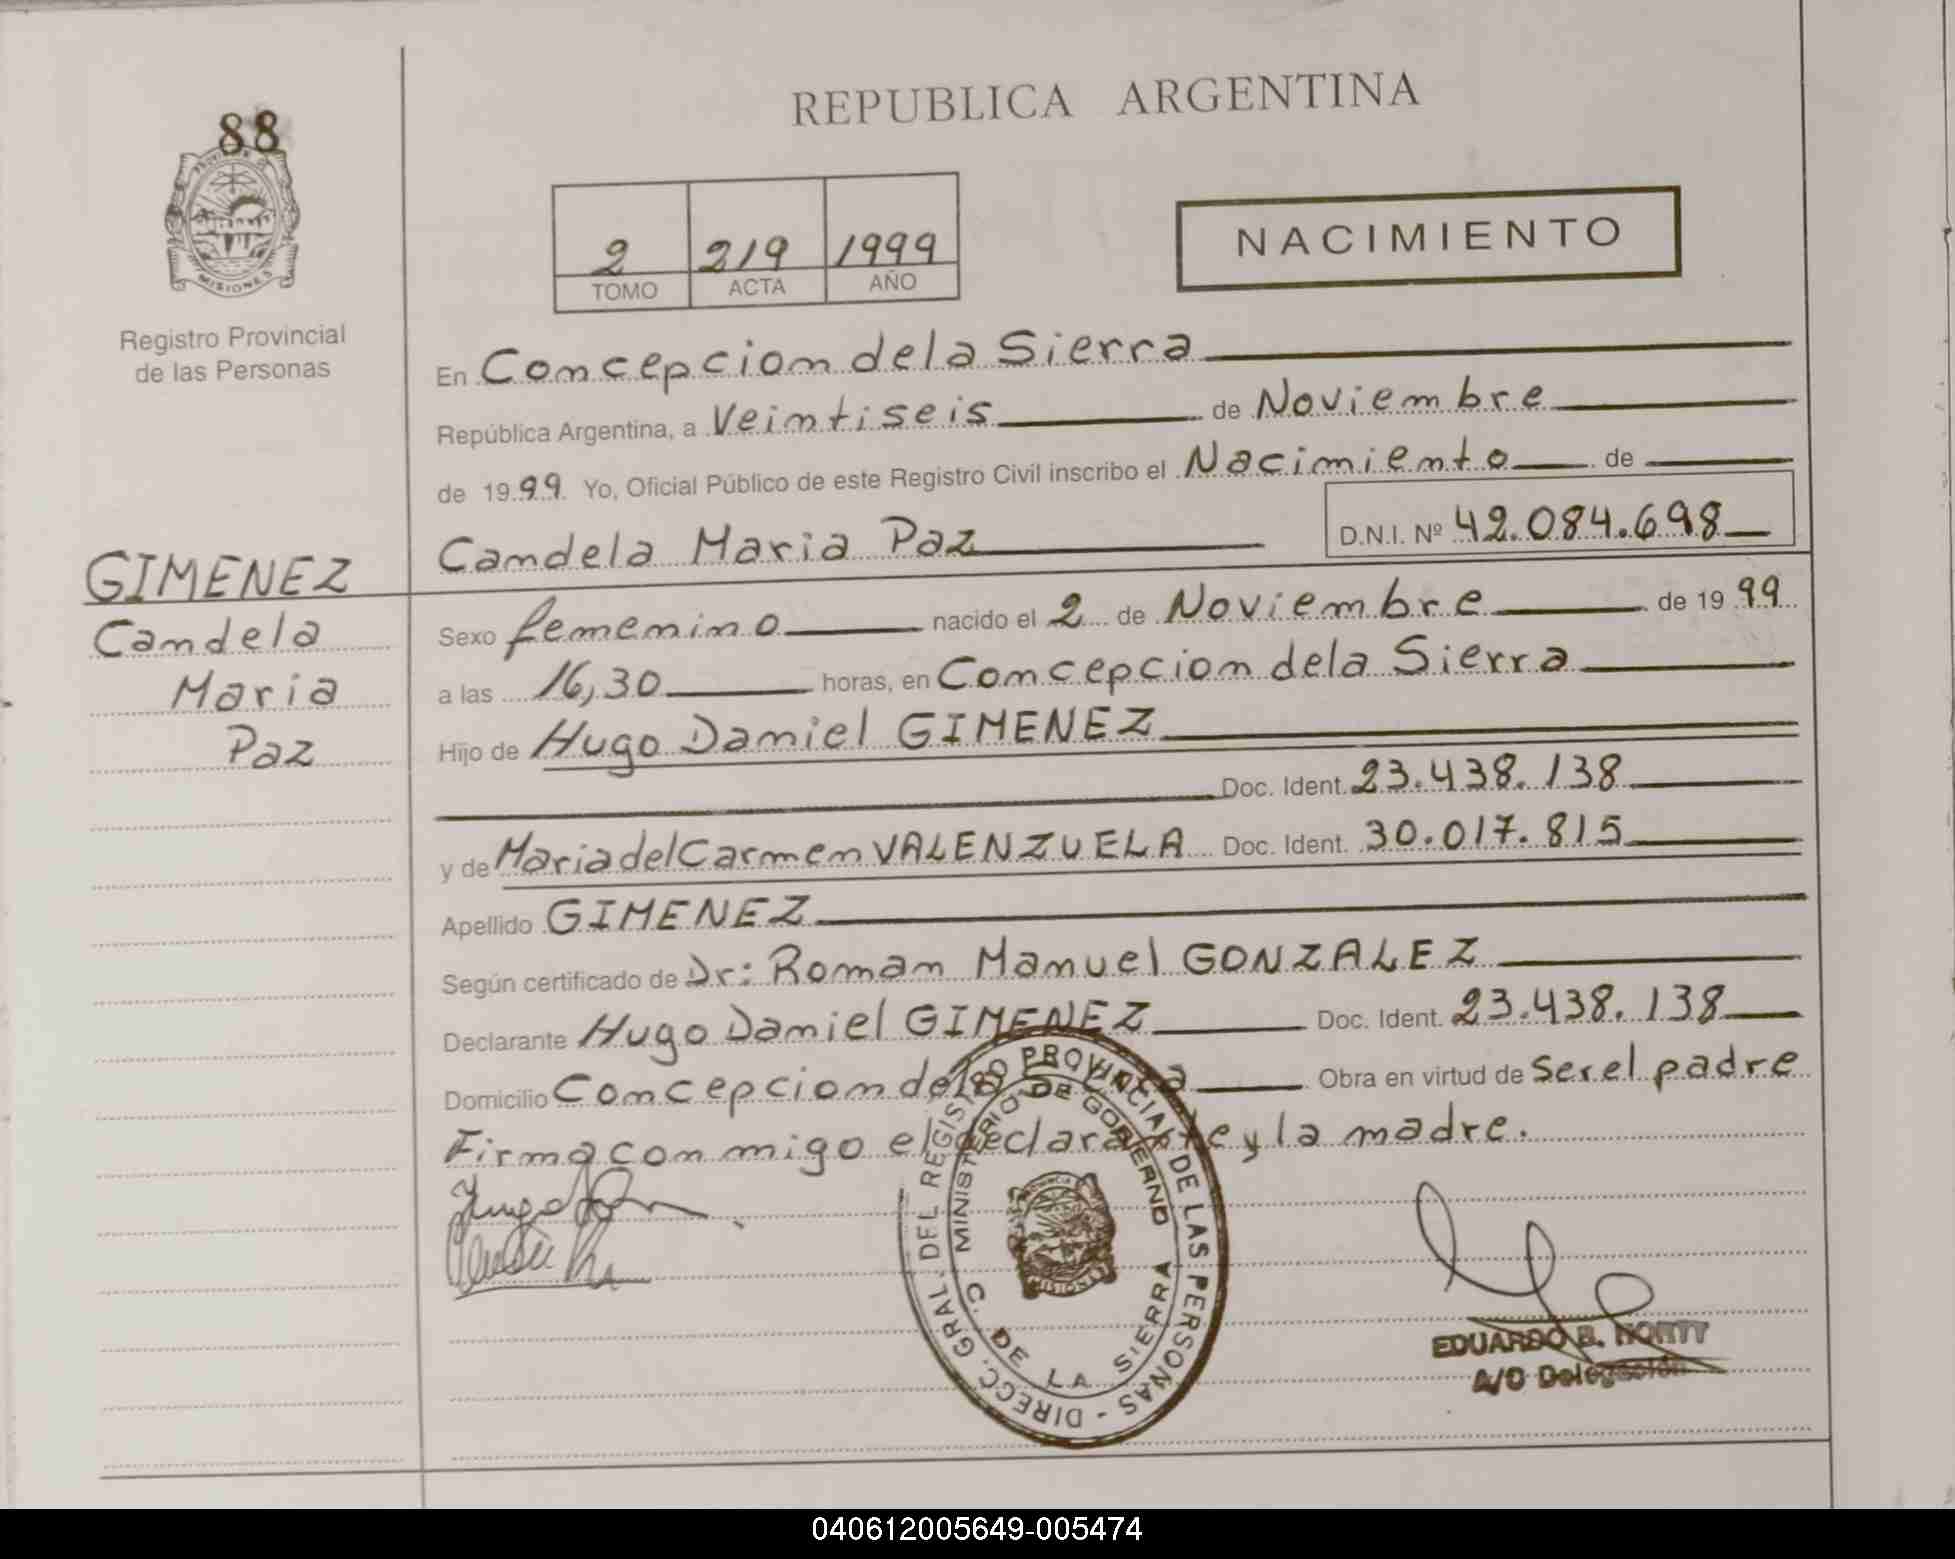 REPUBLICA ARGENTINA
88
PROVINCIA DE
MISIONES
Registro Provincial
de las Personas
2 219 1999
TOMO ACTA AÑO
NACIMIENTO
En Concepcion de la Sierra
República Argentina, a Veintiseis de Noviembre
de 1999. Yo, Oficial Público de este Registro Civil inscribo el Nacimiento de
Candela Maria Paz D.N.I. Nº 42.084.698
GIMENEZ
Candela
Maria
Paz
Sexo femenino nacido el 2 de Noviembre de 1999
a las 16,30 horas, en Concepcion de la Sierra
Hijo de Hugo Daniel GIMENEZ
Doc. Ident. 23.438.138
y de Maria del Carmen VALENZUELA Doc. Ident. 30.017.815
Apellido GIMENEZ
Según certificado de Dr: Roman Manuel GONZALEZ
Declarante Hugo Daniel GIMENEZ Doc. Ident. 23.438.138
Domicilio Concepcion de la Obra en virtud de ser el padre
Firma conmigo el declarante y la madre.
DIRECC. GRAL. DEL REGISTRO PROVINCIAL DE LAS PERSONAS -
MINISTERIO DE GOBIERNO
C. DE LA SIERRA
MISIONES
EDUARDO B.
A/C Delegación
040612005649-005474